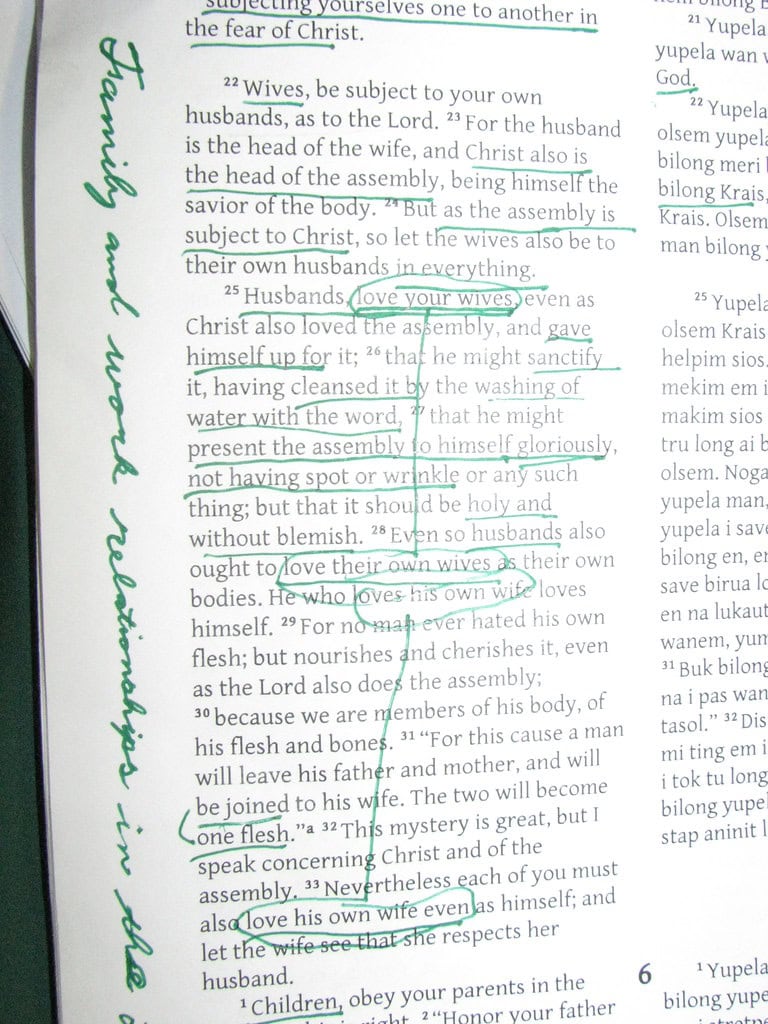 subjecting yourselves one to another in
the fear of Christ.
²² Wives, be subject to your own
husbands, as to the Lord. ²³ For the husband
is the head of the wife, and Christ also is
the head of the assembly, being himself the
savior of the body. ²⁴ But as the assembly is
subject to Christ, so let the wives also be to
their own husbands in everything.
²⁵ Husbands, love your wives, even as
Christ also loved the assembly, and gave
himself up for it; ²⁶ that he might sanctify
it, having cleansed it by the washing of
water with the word, ²⁷ that he might
present the assembly to himself gloriously,
not having spot or wrinkle or any such
thing; but that it should be holy and
without blemish. ²⁸ Even so husbands also
ought to love their own wives as their own
bodies. He who loves his own wife loves
himself. ²⁹ For no man ever hated his own
flesh; but nourishes and cherishes it, even
as the Lord also does the assembly;
³⁰ because we are members of his body, of
his flesh and bones. ³¹ “For this cause a man
will leave his father and mother, and will
be joined to his wife. The two will become
one flesh.”ᵃ ³² This mystery is great, but I
speak concerning Christ and of the
assembly. ³³ Nevertheless each of you must
also love his own wife even as himself; and
let the wife see that she respects her
husband.
¹ Children, obey your parents in the
right. ² “Honor your father
Family and work relationships in the
bilong
²¹ Yupela
yupela wan
God.
²² Yupela
olsem yupela
bilong meri
bilong Krais,
Krais. Olsem
man bilong
²⁵ Yupela
olsem Krais
helpim sios.
mekim em i
makim sios
tru long ai b
olsem. Noga
yupela man,
yupela i save
bilong en, en
save birua lo
en na lukaut
wanem, yum
³¹ Buk bilong
na i pas wan
tasol.” ³² Dis
mi ting em i
i tok tu long
bilong yupel
stap aninit l
6
¹ Yupela
bilong yupe